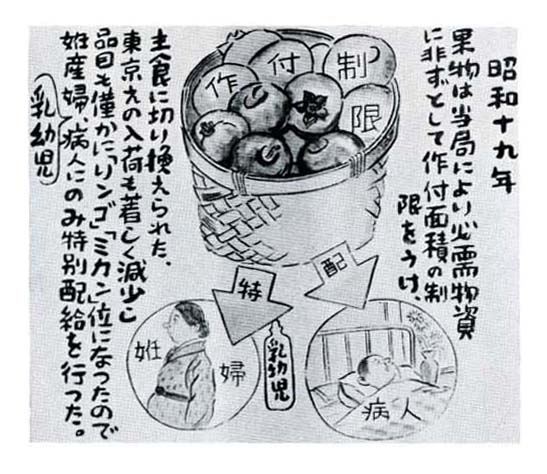 昭和十九年
果物は当局により必需物資
に非ずとして作付面積の制
限をうけ、
制
限
付
作
主食に切り換えられた、
東京えの入荷も著しく減少し
品目も僅かに「リンゴ」「ミカン」位になつたので
姙産婦、病人にのみ特別配給を行つた。
乳幼児
配
特
病人
乳幼児
姙
婦